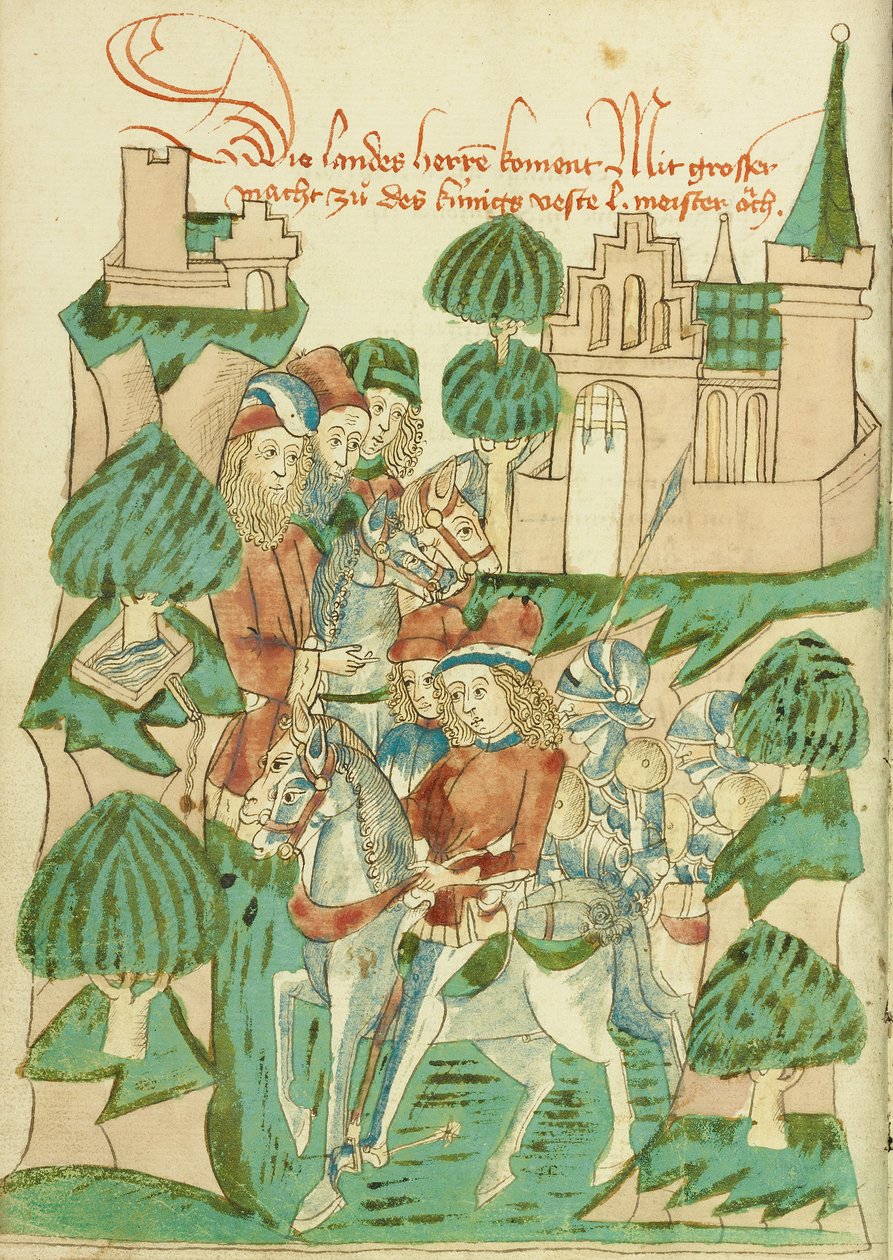 Die landes herrē koment Mit grosser
macht zů des kúnigs veste L. meister ꝟch.